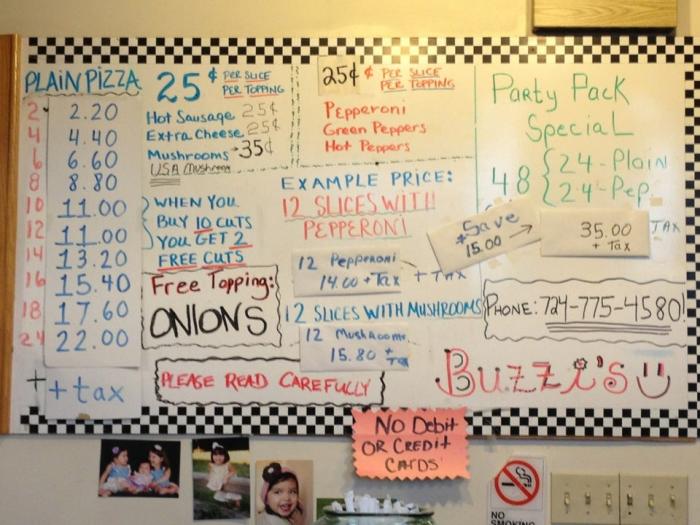 PLAIN PIZZA
2 2.20
4 4.40
6 6.60
8 8.80
10 11.00
12 11.00
14 13.20
16 15.40
18 17.60
24 22.00
+ + tax
25¢ PER SLICE
PER TOPPING
Hot Sausage 25¢
Extra Cheese 25¢
Mushrooms 35¢
USA Mushroom
WHEN YOU
BUY 10 CUTS
YOU GET 2
FREE CUTS
Free Topping:
ONIONS
PLEASE READ CAREFULLY
25¢ ¢ PER SLICE
PER TOPPING
Pepperoni
Green Peppers
Hot Peppers
EXAMPLE PRICE:
12 SLICES WITH
PEPPERONI
12 Pepperoni
14.00 + Tax + TAX
12 SLICES WITH MUSHROOMS
12 Mushrooms
15.80 + Tax
Party Pack
Special
48 { 24 - Plain
24 - Pep.
Save
15.00 →
35.00 TAX
+ Tax
PHONE: 724-775-4580!
Buzzi's
No Debit
OR CREDIT
CARDS
NO
SMOKING